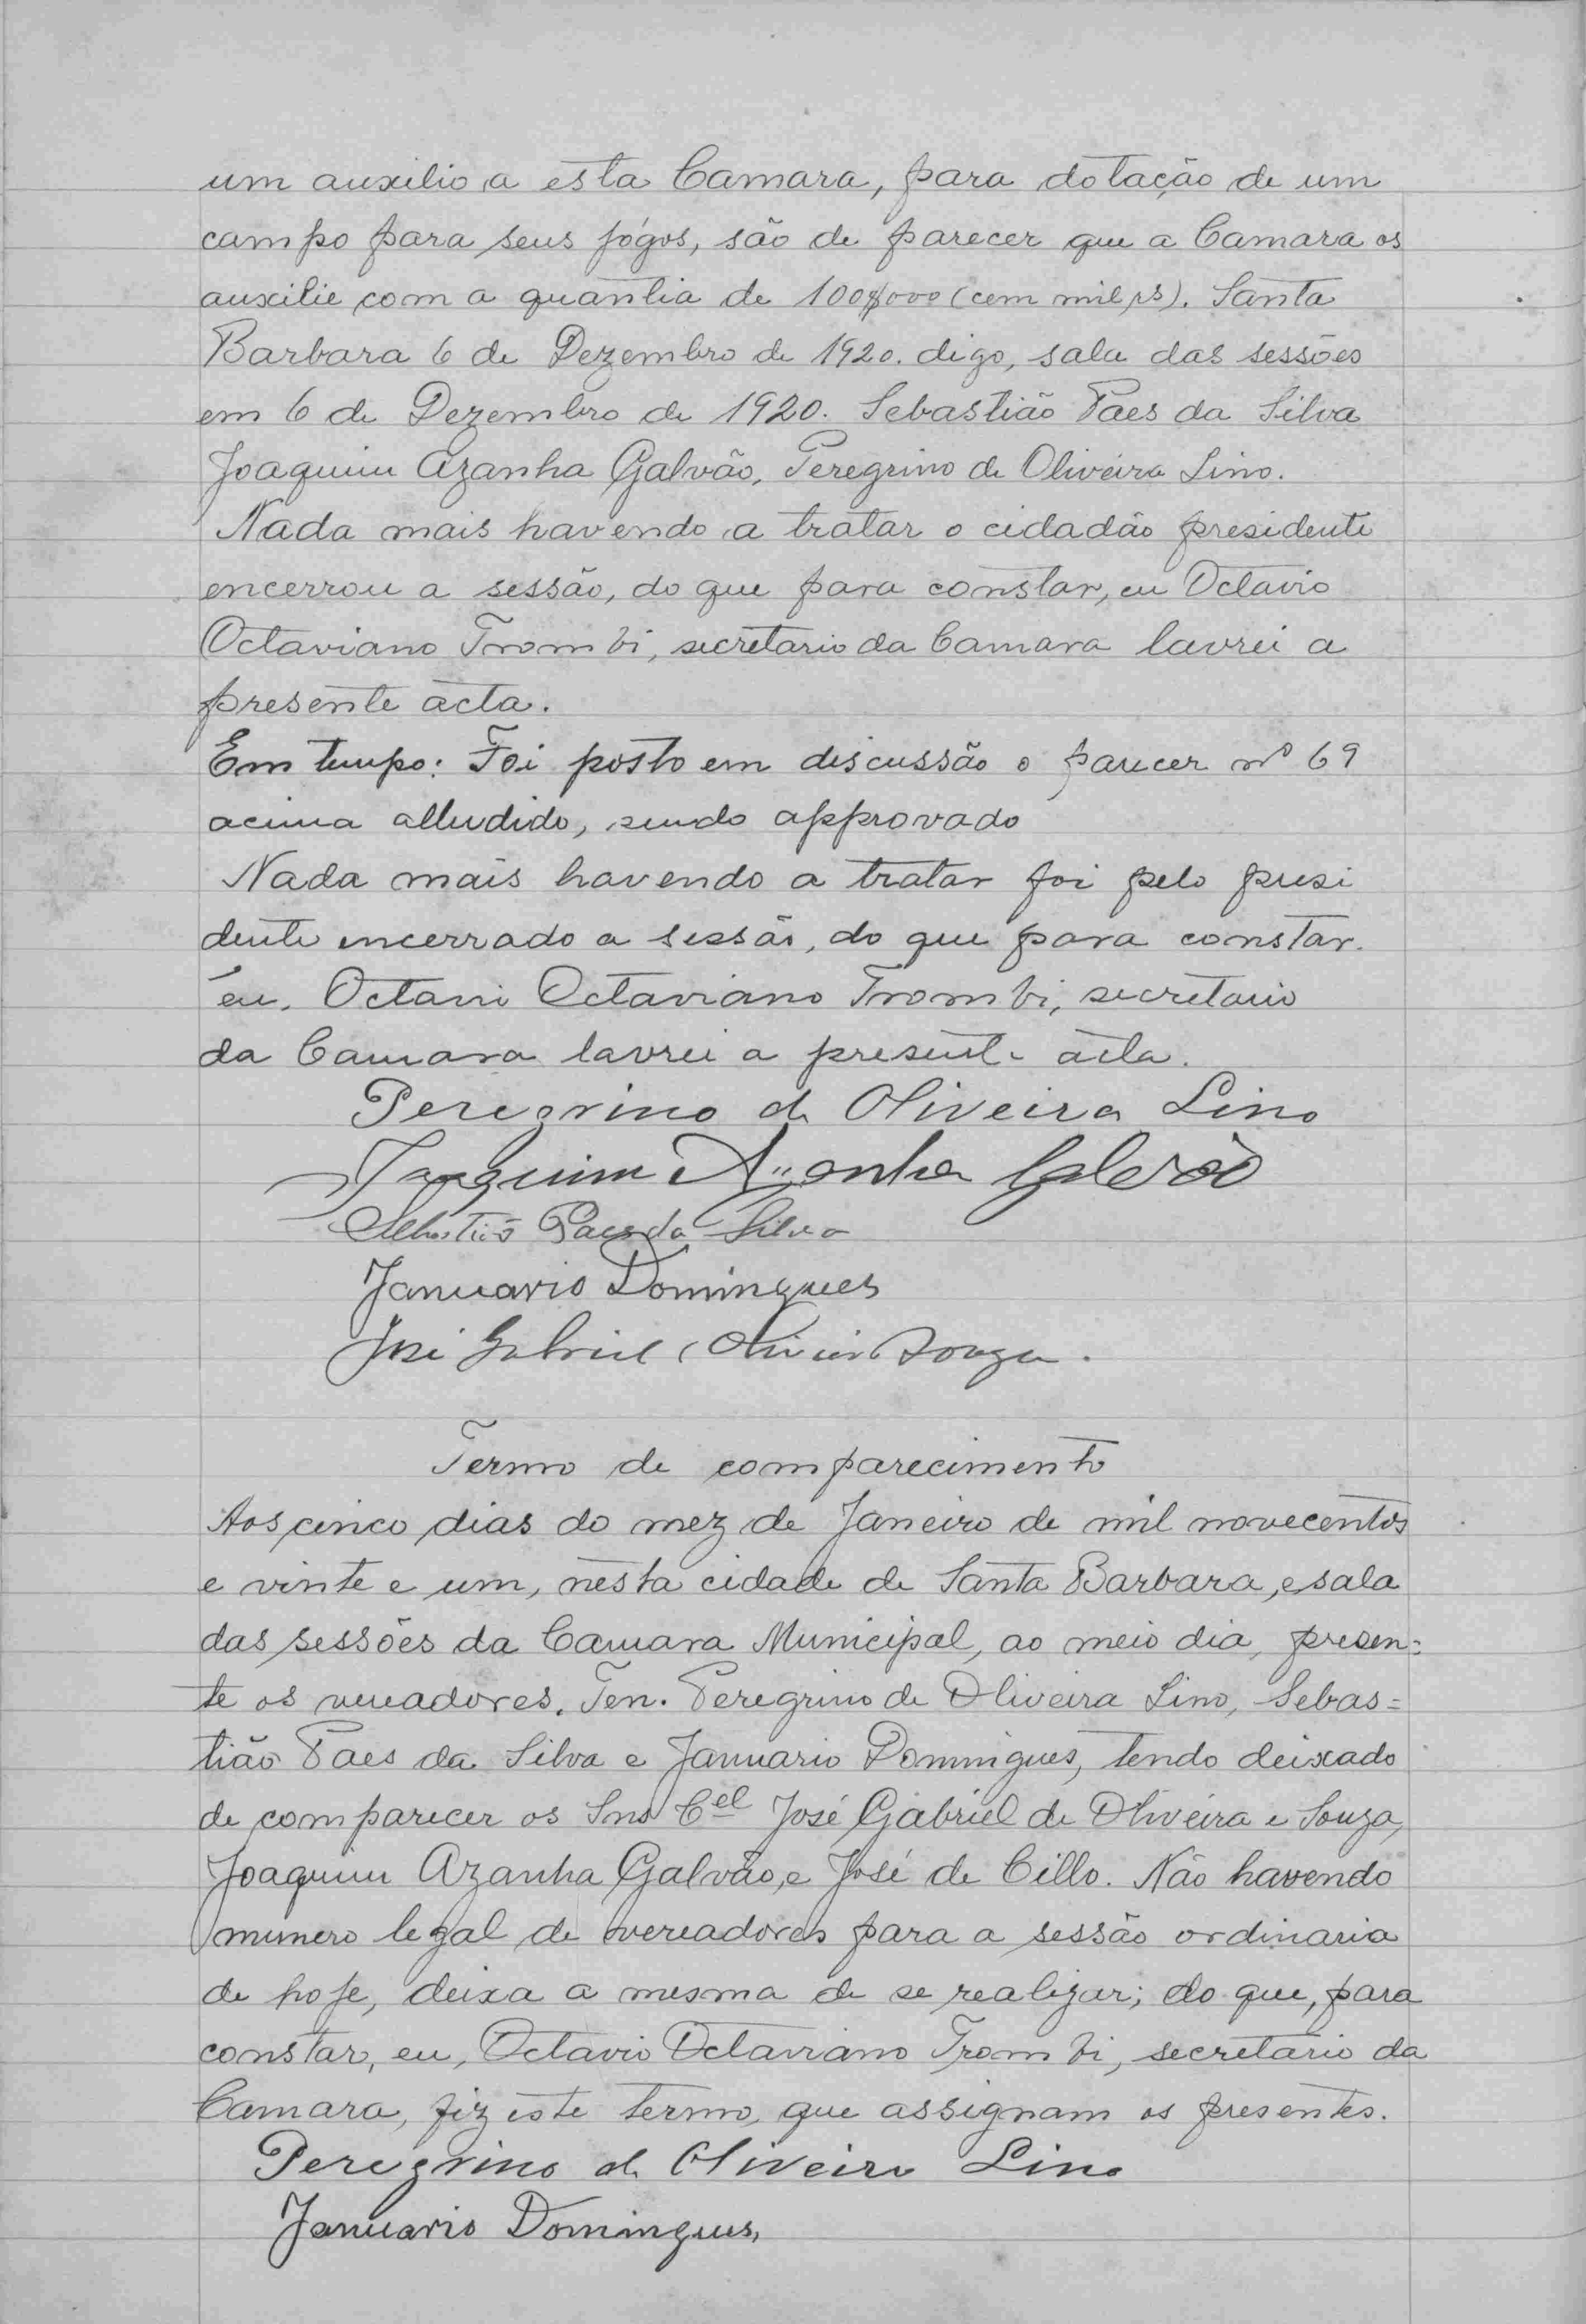 um auxilio a esta Camara, para dotação de um
campo para seus jógos, são de parecer que a Camara os
auxilie com a quantia de 100$000 (cem mil rs). Santa
Barbara 6 de Dezembro de 1920. digo, sala das sessões
em 6 de Dezembro de 1920. Sebastião Paes da Silva
Joaquim Azanha Galvão, Peregrino de Oliveira Lino.
Nada mais havendo a tratar o cidadão presidente
encerrou a sessão, do que para constar, eu Octavio
Octaviano Trombi, secretario da Camara lavrei a
presente acta.
Em tempo: Foi posto em discussão o parecer nº 69
acima alludido, sendo approvado
Nada mais havendo a tratar foi pelo presi
dente encerrado a sessão, do que para constar.
eu, Octavi Octaviano Trombi, secretario
da Camara lavrei a presente acta.
Peregrino de Oliveira Lino
Joaquim Azanha Galvão
Sebastião Paes da Silva
Januario Domingues
José Gabriel Oliveira Souza.
Termo de comparecimento
Aos cinco dias do mez de Janeiro de mil novecentos
e vinte e um, nesta cidade de Santa Barbara, e sala
das sessões da Camara Municipal, ao meio dia, presen=
te os vereadores. Ten. Peregrino de Oliveira Lino, Sebas=
tião Paes da Silva e Januario Domingues, tendo deixado
de comparecer os Snrs Cel José Gabriel de Oliveira e Souza,
Joaquim Azanha Galvão, e José de Cillo. Não havendo
numero legal de vereadores para a sessão ordinaria
de hoje, deixa a mesma de se realizar; do que, para
constar, eu, Octavio Octaviano Trombi, secretario da
Camara, fiz este termo, que assignam os presentes.
Peregrino de Oliveira Lino
Januario Domingues,